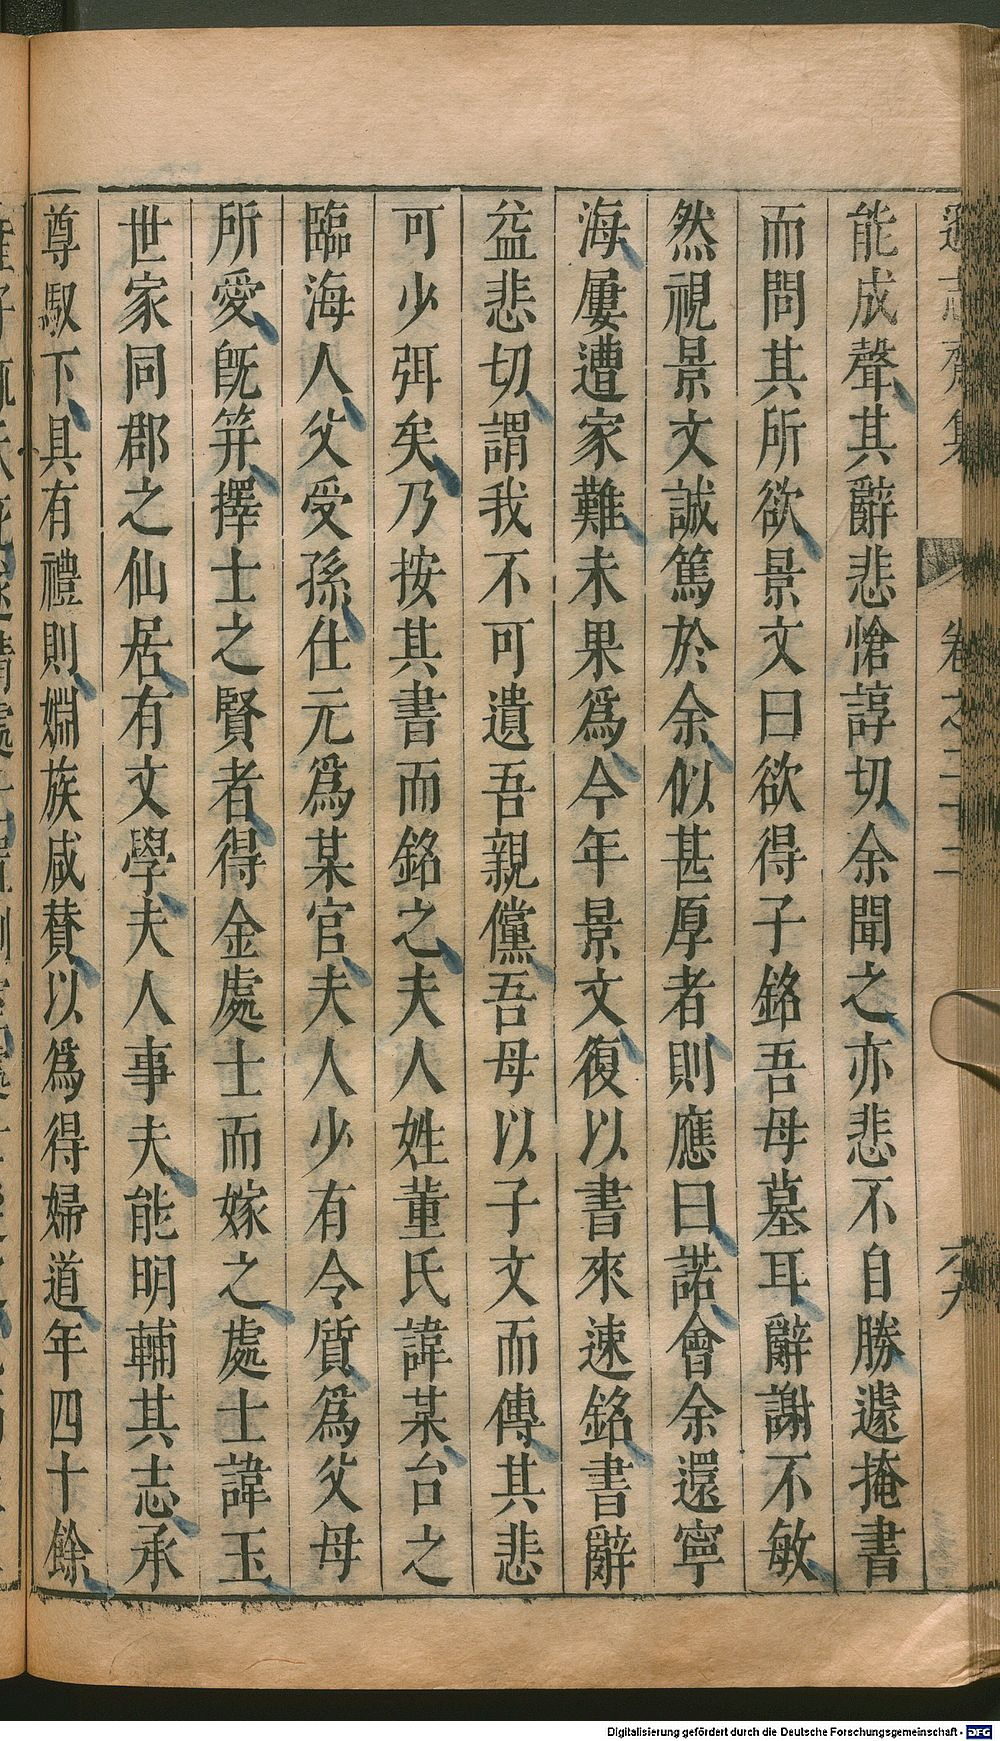 遜志齋集 卷之二十二
能成聲其辭悲愴諄切余聞之亦悲不自勝遽掩書
而問其所欲景文曰欲得子銘吾母墓耳辭謝不敏
然視景文誠篤於余似甚厚者則應曰諾會余還寧
海屢遭家難未果爲今年景文復以書來速銘書辭
益悲切謂我不可遺吾親儻吾母以子文而傳其悲
可少弭矣乃按其書而銘之夫人姓董氏諱某台之
臨海人父受孫仕元爲某官夫人少有令質爲父母
所愛旣笄擇士之賢者得金處士而嫁之處士諱玉
世家同郡之仙居有文學夫人事夫能明輔其志承
尊馭下具有禮則婣族咸賛以爲得婦道年四十餘
Digitalisierung gefördert durch die Deutsche Forschungsgemeinschaft - DFG